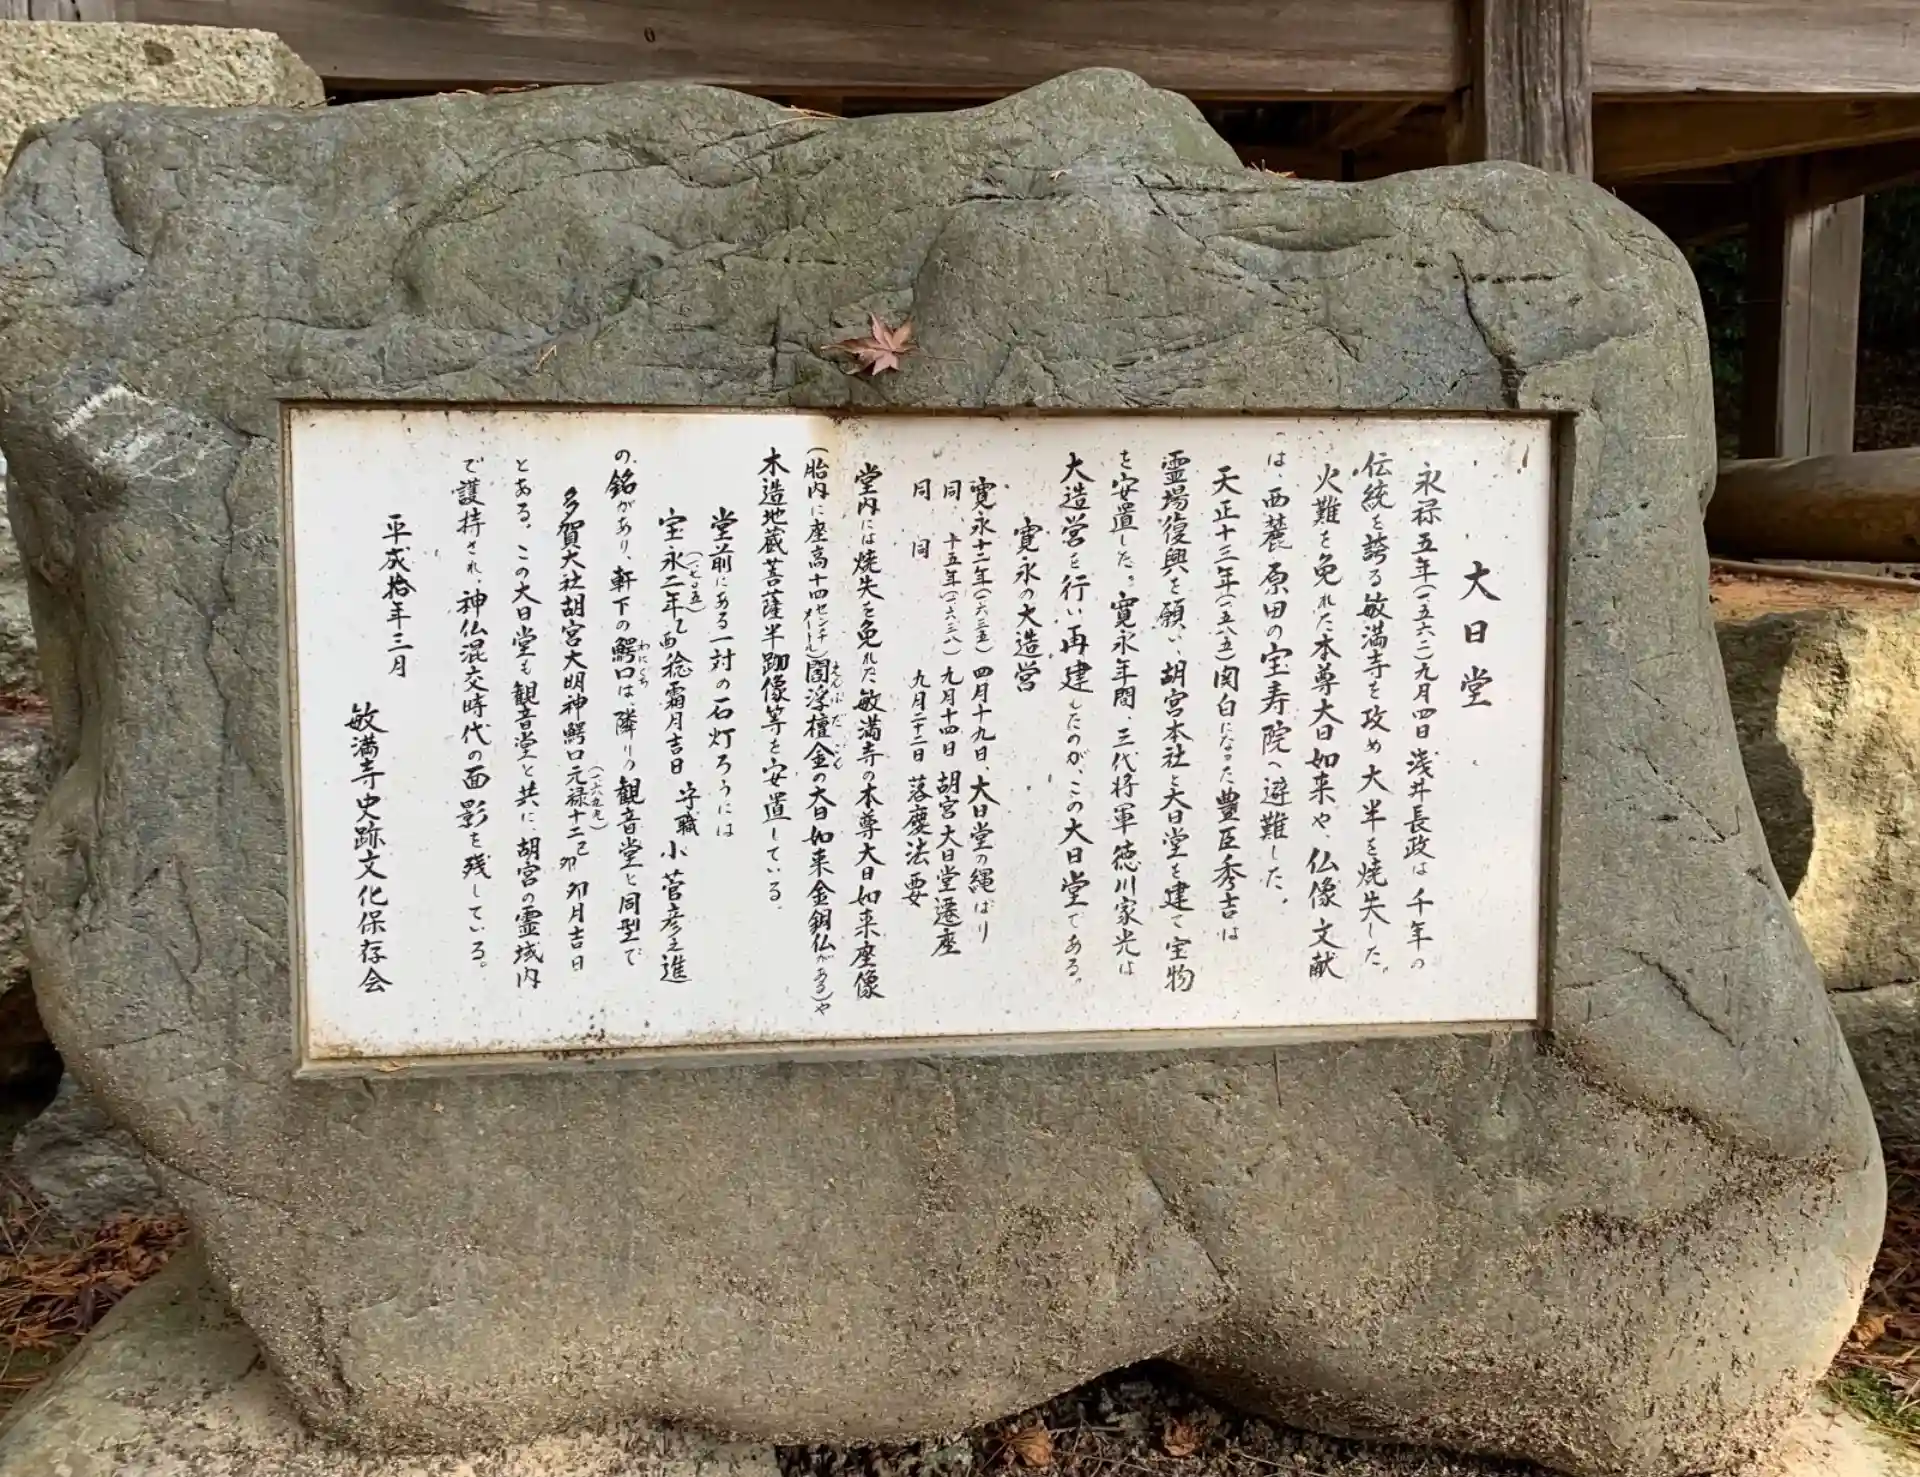 大日堂
永禄五年(一五六二)九月四日浅井長政は千年の
伝統を誇る敏満寺を攻め大半を焼失した。
火難を免れた本尊大日如来や仏像文献
は西麓原田の宝寿院へ避難した。
天正十三年(一五八五)関白になった豊臣秀吉は
霊場復興を願い、胡宮本社と大日堂を建て宝物
を安置した。寛永年間、三代将軍徳川家光は
大造営を行い再建したのが、この大日堂である。
寛永の大造営
寛永十二年(一六三五)四月十九日、大日堂の縄ばり
同、十五年(一六三八)九月十四日胡宮大日堂遷座
同 同 九月二十二日落慶法要
堂内には焼失を免れた敏満寺の本尊大日如来座像
(胎内に座高十四センチメートル)閻浮檀金の大日如来金銅仏がある)や
えんぶだごん
木造地蔵菩薩半跏像等を安置している。
堂前にある一対の石灯ろうには
(一七〇五)
宝永二年乙酉稔霜月吉日 守職 小菅彦之進
の銘があり、軒下の鰐口は、隣りの観音堂と同型で
わにぐち
多賀大社胡宮大明神鰐口元禄十二己卯卯月吉日
(一六九九)
とある。この大日堂も観音堂と共に、胡宮の霊域内
で護持され、神仏混交時代の面影を残している。
平成拾年三月
敏満寺史跡文化保存会